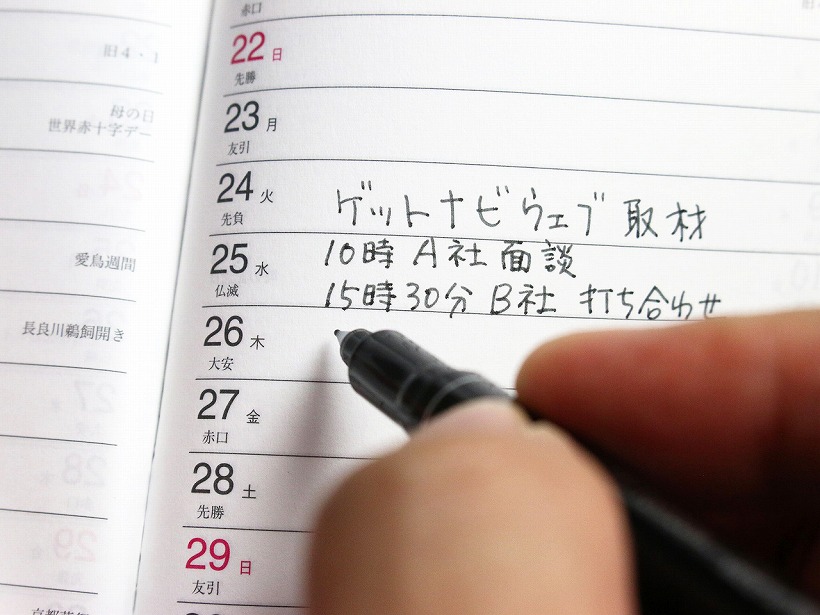 旧4・1
母の日
世界赤十字デー
愛鳥週間
長良川鵜飼開き
赤口
22 日
先勝
23 月
友引
24 火
先負
ゲットナビウェブ 取材
25 水
仏滅
10時 A社 面談
15時30分 B社 打ち合わせ
26 木
大安
27 金
赤口
28 土
先勝
29 日
友引